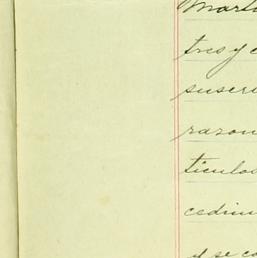 Marti
tres y c
suscri
razon
ticulo
cedim
y se co